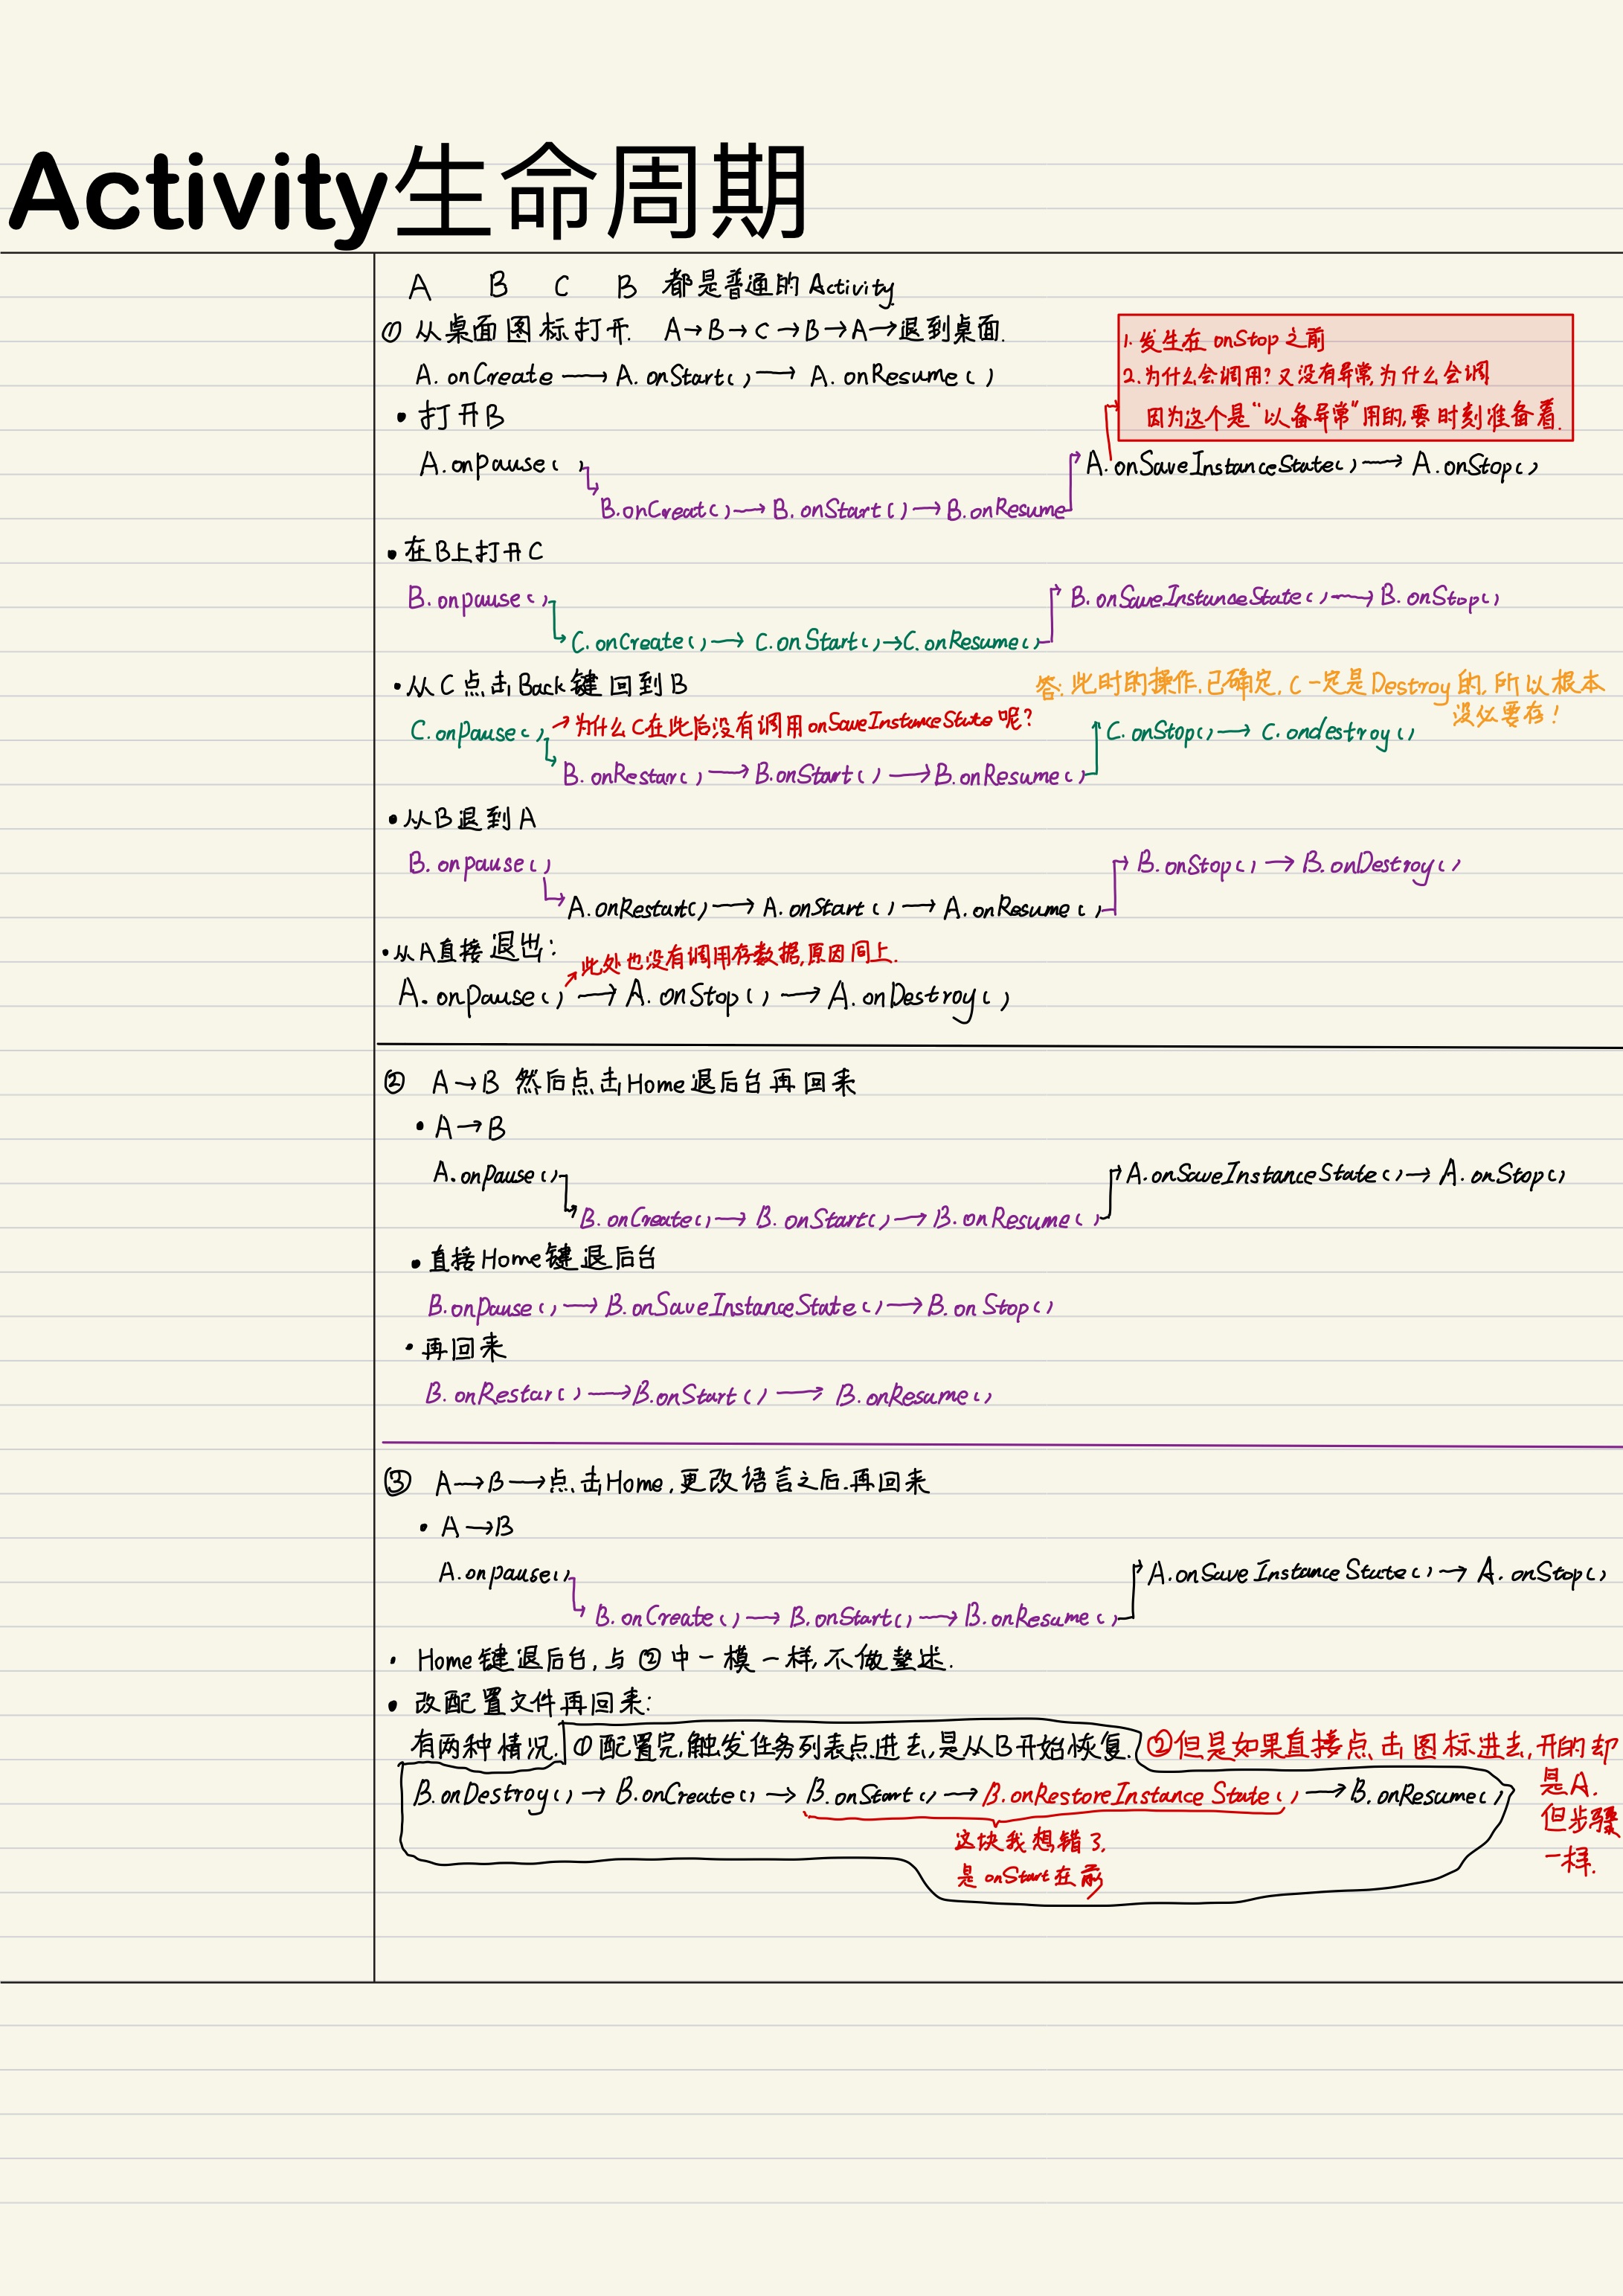 Activity生命周期
A B C B 都是普通的 Activity
① 从桌面图标打开. A→B→C→B→A→退到桌面.
A. onCreate → A. onStart() → A. onResume()
1. 发生在 onStop 之前
2. 为什么会调用？又没有异常,为什么会调
因为这个是“以备异常”用的,要时刻准备着.
• 打开B
A.onpause( )
B.onCreat() → B.onStart() → B.onResume
A.onSaveInstanceState() → A.onStop()
• 在B上打开C
B.onpause()
C.onCreate() → C.onStart() → C.onResume()
B.onSaveInstanceState() → B.onStop()
• 从C点击Back键回到B
答: 此时的操作,已确定, C一定是Destroy的, 所以根本
没必要存!
C.onpause() → 为什么C在此后没有调用onSaveInstanceState呢?
B.onRestar() → B.onStart() → B.onResume()
C.onStop() → C.ondestroy()
• 从B退到A
B.onpause()
A.onRestart() → A.onStart() → A.onResume()
B.onStop() → B.onDestroy()
• 从A直接退出:
此处也没有调用存数据,原因同上.
A.onpause() → A.onStop() → A.onDestroy()
② A→B 然后点击Home退后台再回来
• A→B
A.onpause()
B.onCreate() → B.onStart() → B.onResume()
A.onSaveInstanceState() → A.onStop()
• 直接Home键退后台
B.onpause() → B.onSaveInstanceState() → B.onStop()
• 再回来
B.onRestar() → B.onStart() → B.onResume()
③ A→B→点击Home,更改语言之后.再回来
• A→B
A.onpause()
B.onCreate() → B.onStart() → B.onResume()
A.onSaveInstanceState() → A.onStop()
• Home键退后台, 与②中一模一样, 不做述.
• 改配置文件再回来:
有两种情况. ①配置完,触发任务列表点进去,是从B开始恢复.
B.onDestroy() → B.onCreate() → B.onStart() → B.onRestoreInstanceState() → B.onResume()
这块我想错了,
是 onStart在前
②但是如果直接点击图标进去,开的却
是A.
但步骤
一样.